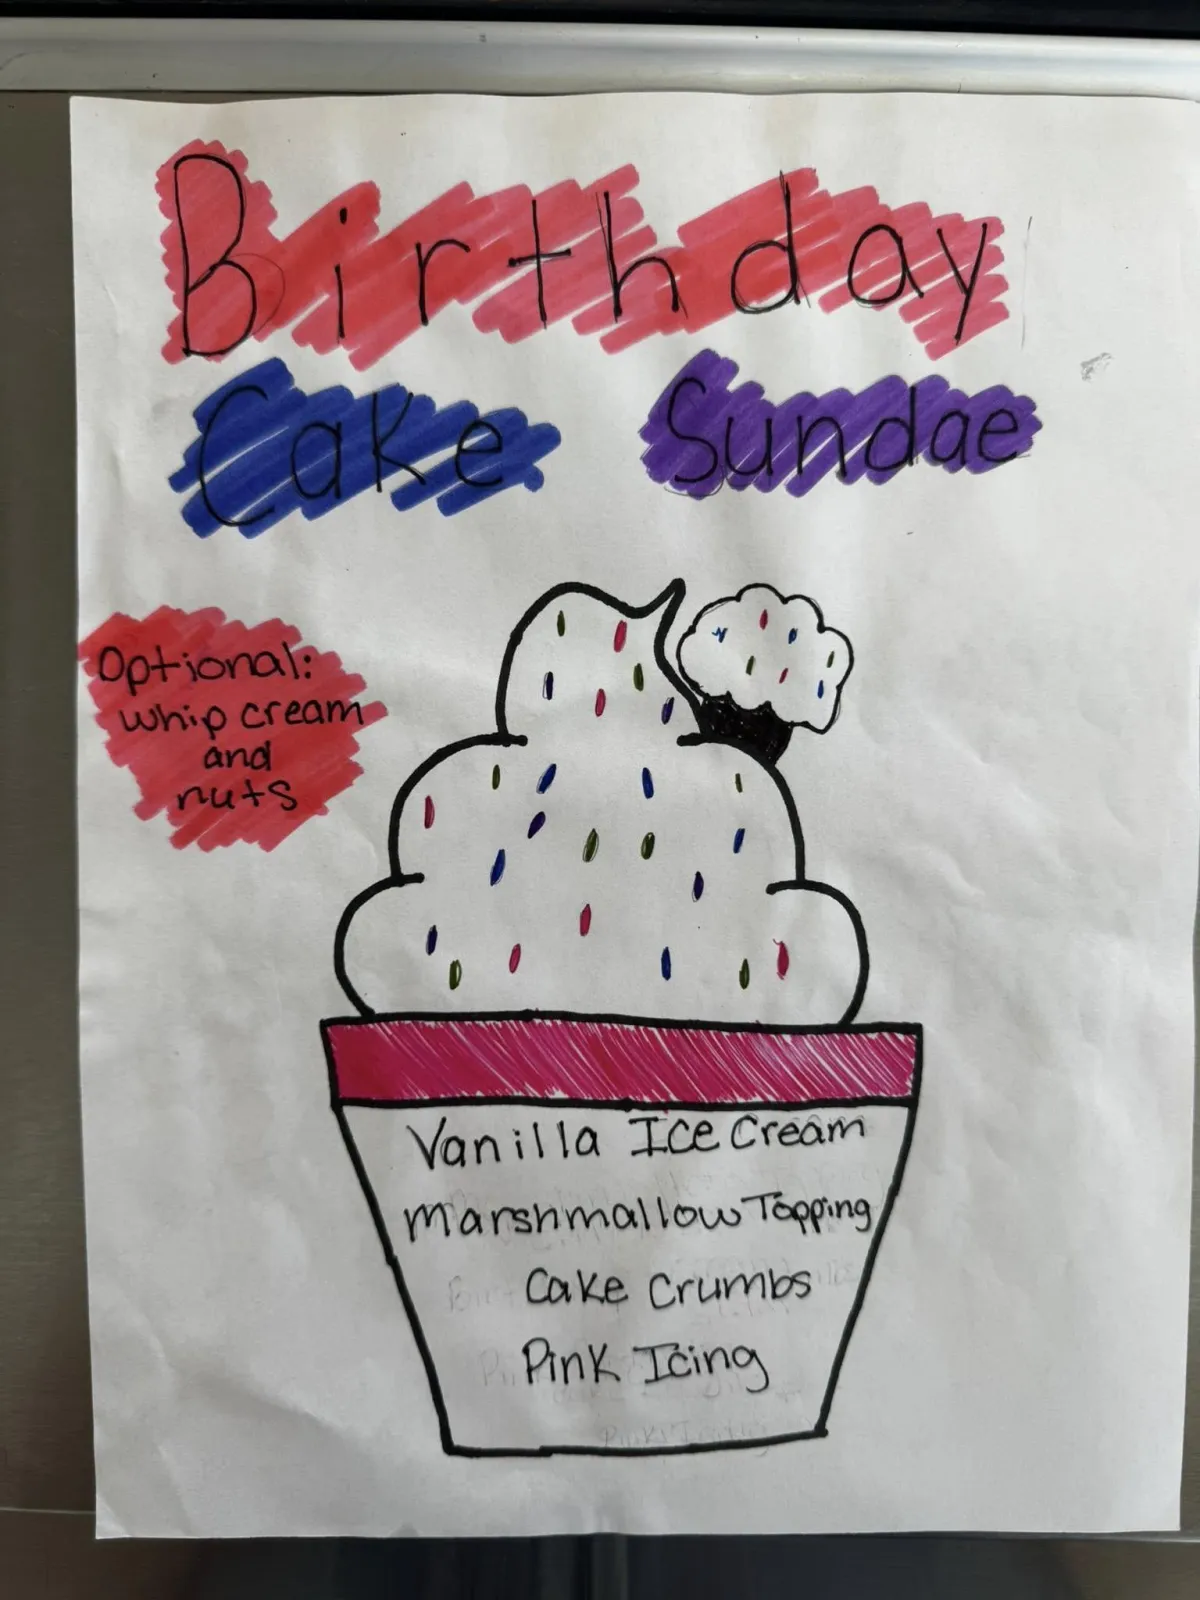 Birthday
Cake Sundae
Optional:
whip cream
and
nuts
Vanilla Ice Cream
Marshmallow Topping
Cake Crumbs
Pink Icing